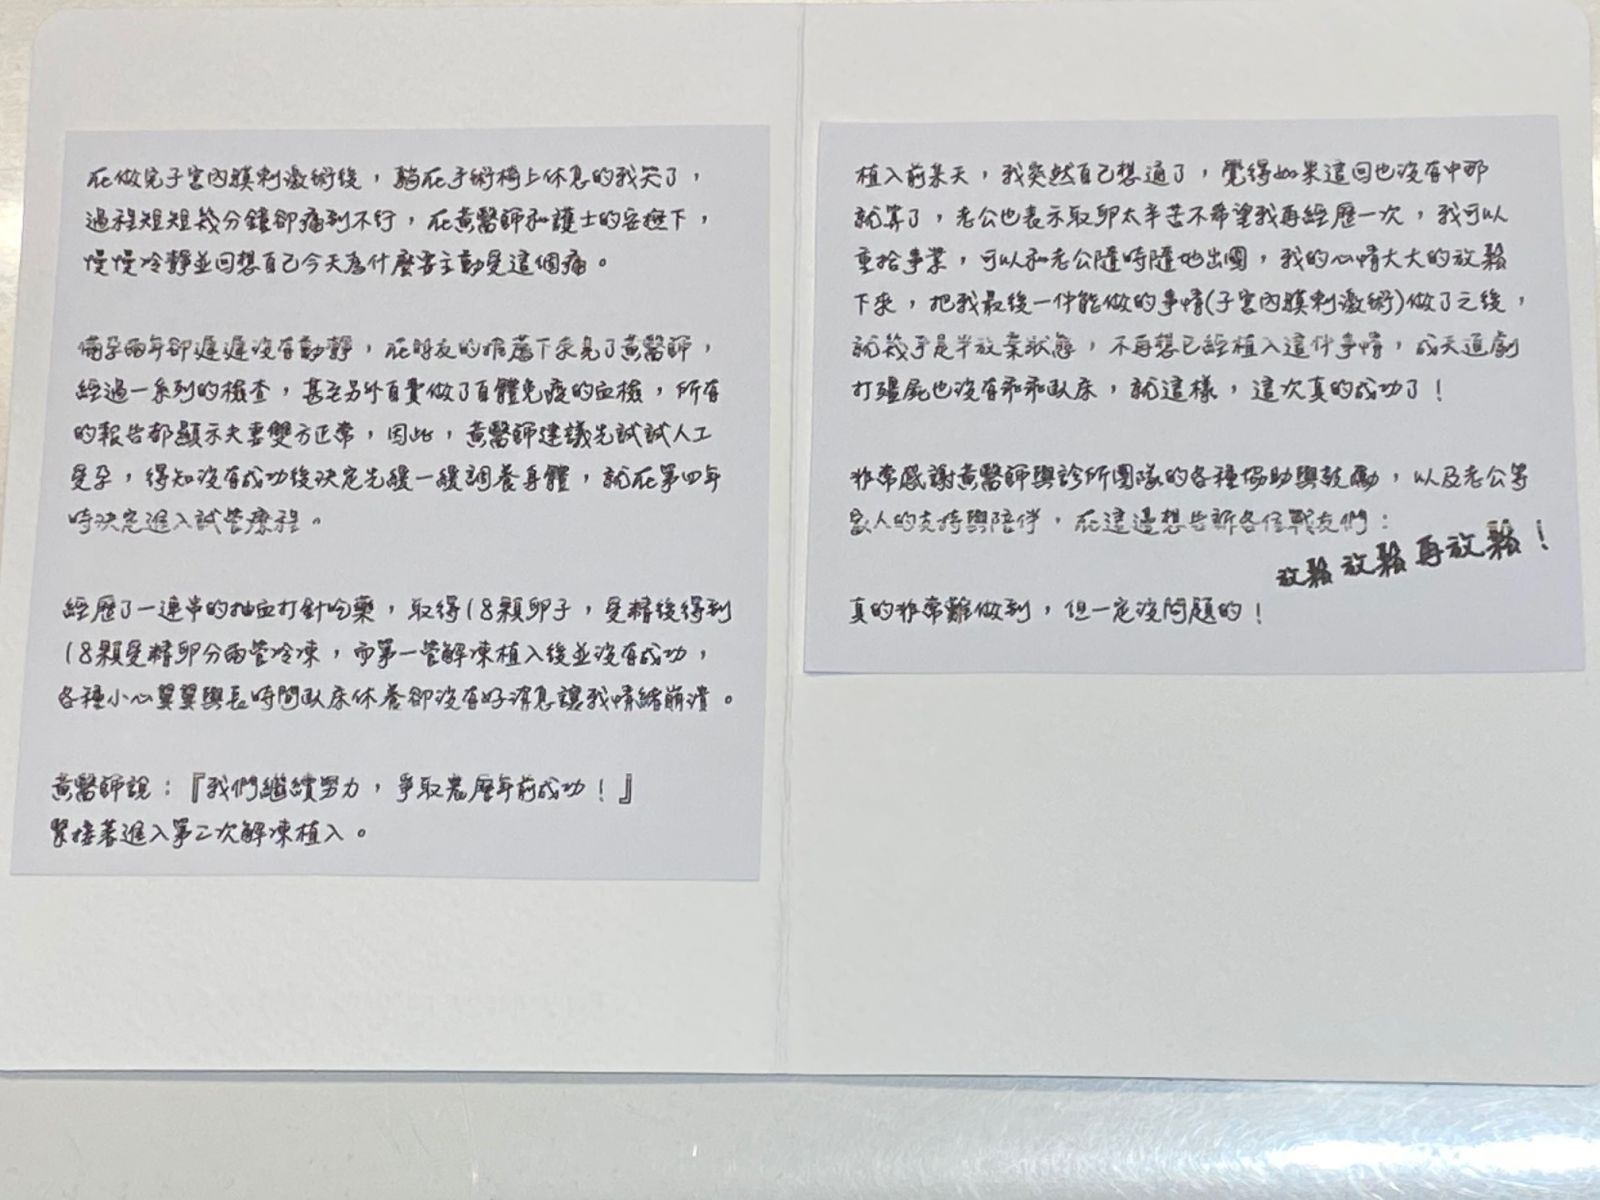 在做完子宮內膜刺激術後，躺在手術椅上休息的我哭了，
過程短短幾分鐘卻痛到不行，在黃醫師和護士的安撫下，
慢慢冷靜並回想自己今天為什麼要主動受這個痛。
備孕兩年卻遲遲沒有動靜，在朋友的推薦下來見了黃醫師，
經過一系列的檢查，甚至另外自費做了自體免疫的血檢，所有
的報告都顯示夫妻雙方正常，因此，黃醫師建議先試試人工
受孕，得知沒有成功後決定先緩一緩調養身體，就在第四年
時決定進入試管療程。
經歷了一連串的抽血打針吃藥，取得18顆卵子，受精後得到
18顆受精卵分兩管冷凍，而第一管解凍植入後並沒有成功，
各種小心翼翼與長時間臥床休養卻沒有好消息讓我情緒崩潰。
黃醫師說：『我們繼續努力，爭取農曆年前成功！』
緊接著進入第二次解凍植入。
植入前某天，我突然自己想通了，覺得如果這回也沒有中那
就算了，老公也表示取卵太辛苦不希望我再經歷一次，我可以
重拾事業，可以和老公隨時隨地出國，我的心情大大的放鬆
下來，把我最後一件能做的事情(子宮內膜刺激術)做了之後，
就幾乎是半放棄狀態，不再想已經植入這件事情，成天追劇
打殭屍也沒有乖乖臥床，就這樣，這次真的成功了！
非常感謝黃醫師與診所團隊的各種協助與鼓勵，以及老公等
家人的支持與陪伴，在這邊想告訴各位戰友們：
放鬆放鬆再放鬆！
真的非常難做到，但一定沒問題的！